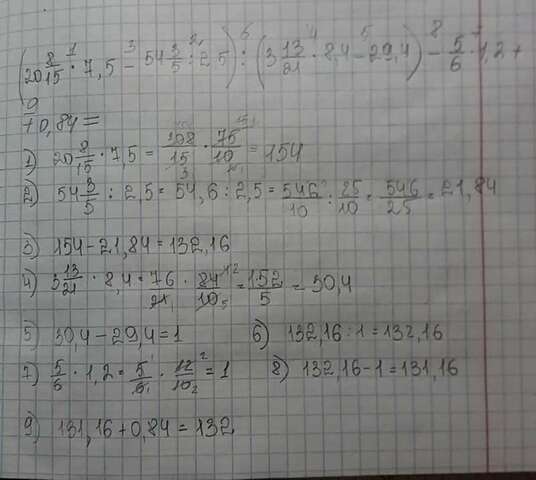 (20 8/15 · 7,5 − 54 3/5 : 2,5) : (3 13/21 · 8,4 − 29,4) − 5/6 · 1,2 +
+ 0,84 =
1) 20 8/15 · 7,5 = 308/15 · 75/10 = 154
2) 54 3/5 : 2,5 = 54,6 : 2,5 = 546/10 : 25/10 = 546/25 = 21,84
3) 154 − 21,84 = 132,16
4) 3 13/21 · 8,4 = 76/21 · 84/10 = 152/5 = 30,4
5) 30,4 − 29,4 = 1 6) 132,16 : 1 = 132,16
7) 5/6 · 1,2 = 5/6 · 12/10 = 1 8) 132,16 − 1 = 131,16
9) 131,16 + 0,84 = 132